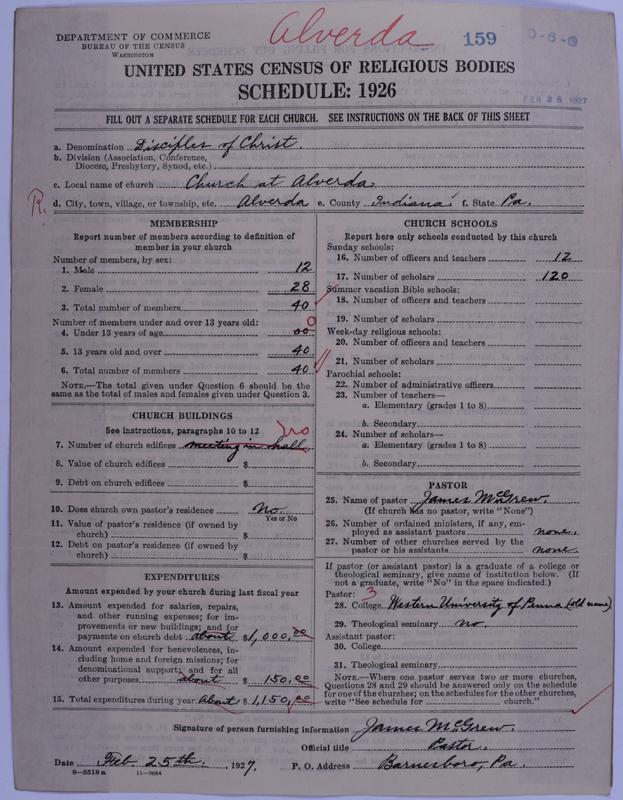 Alverda
159
0-6-0
DEPARTMENT OF COMMERCE
BUREAU OF THE CENSUS
WASHINGTON
UNITED STATES CENSUS OF RELIGIOUS BODIES
SCHEDULE: 1926
FEB 26 1927
FILL OUT A SEPARATE SCHEDULE FOR EACH CHURCH. SEE INSTRUCTIONS ON THE BACK OF THIS SHEET
a. Denomination Disciples of Christ.
b. Division (Association, Conference,
Diocese, Presbytery, Synod, etc.)
c. Local name of church Church at Alverda.
R. d. City, town, village, or township, etc. Alverda e. County Indiana f. State Pa.
MEMBERSHIP
Report number of members according to definition of
member in your church
Number of members, by sex:
1. Male 12
2. Female 28
3. Total number of members 40
Number of members under and over 13 years old:
4. Under 13 years of age 00 0
5. 13 years old and over 40
6. Total number of members 40
NOTE.—The total given under Question 6 should be the
same as the total of males and females given under Question 3.
CHURCH BUILDINGS
See instructions, paragraphs 10 to 12
no
7. Number of church edifices meeting in hall.
8. Value of church edifices $
9. Debt on church edifices $
10. Does church own pastor's residence No.
Yes or No
11. Value of pastor's residence (if owned by
church) $
12. Debt on pastor's residence (if owned by
church) $
EXPENDITURES
Amount expended by your church during last fiscal year
13. Amount expended for salaries, repairs,
and other running expenses; for im-
provements or new buildings; and for
payments on church debt about $1,000.00
14. Amount expended for benevolences, in-
cluding home and foreign missions; for
denominational support; and for all
other purposes about $150.00
15. Total expenditures during year About $1,150.00
CHURCH SCHOOLS
Report here only schools conducted by this church
Sunday schools:
16. Number of officers and teachers 12
17. Number of scholars 120
Summer vacation Bible schools:
18. Number of officers and teachers
19. Number of scholars
Week-day religious schools:
20. Number of officers and teachers
21. Number of scholars
Parochial schools:
22. Number of administrative officers
23. Number of teachers—
a. Elementary (grades 1 to 8)
b. Secondary
24. Number of scholars—
a. Elementary (grades 1 to 8)
b. Secondary
PASTOR
25. Name of pastor James McGrew.
(If church has no pastor, write "None")
26. Number of ordained ministers, if any, em-
ployed as assistant pastors none.
27. Number of other churches served by the
pastor or his assistants none
If pastor (or assistant pastor) is a graduate of a college or
theological seminary, give name of institution below. (If
not a graduate, write "No" in the space indicated.)
Pastor: 3
28. College Western University of Penna (old name)
29. Theological seminary no.
Assistant pastor:
30. College
31. Theological seminary
NOTE.—Where one pastor serves two or more churches,
Questions 28 and 29 should be answered only on the schedule
for one of the churches; on the schedules for the other churches,
write "See schedule for church."
Signature of person furnishing information James McGrew.
Official title Pastor.
Date Feb. 25th., 1927. P. O. Address Barnesboro, Pa.
8—5518a 11—9684